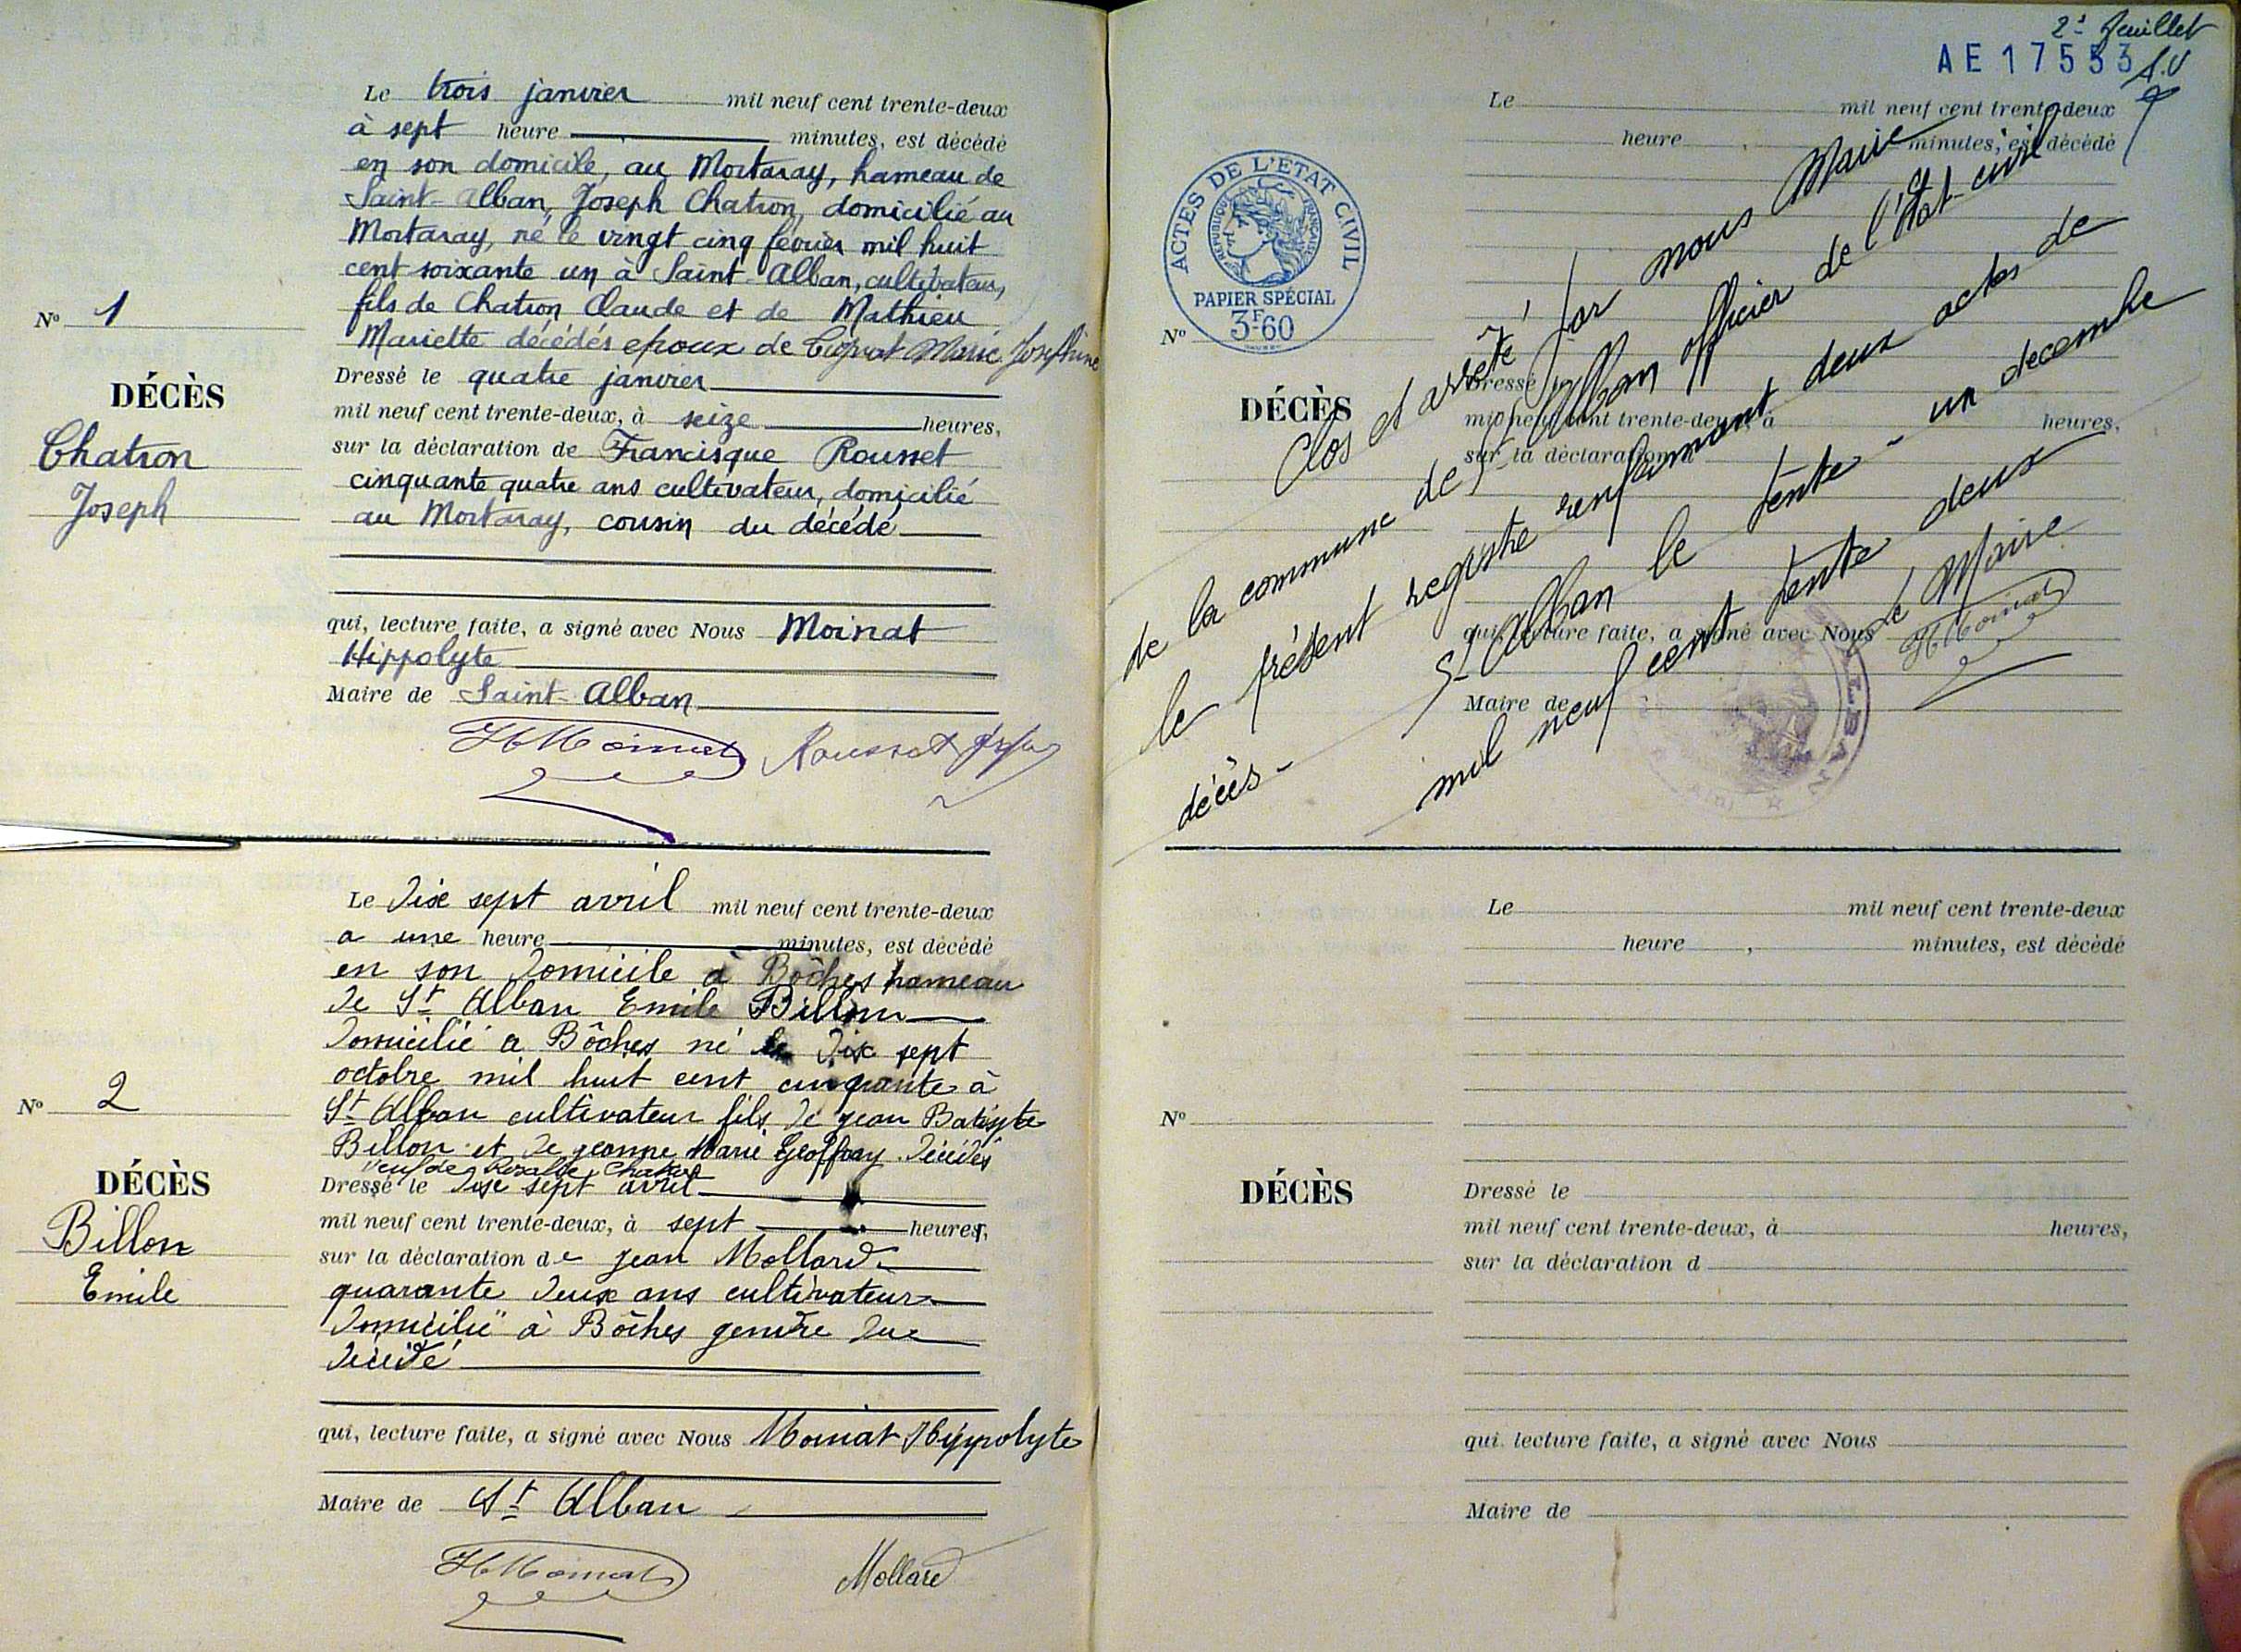 Le trois janvier mil neuf cent trente-deux
à sept heure minutes, est décédé
en son domicile, au Mortaray, hameau de
Saint-Alban, Joseph Chatron, domicilié au
Mortaray, né le vingt cinq février mil huit
cent soixante un à Saint-Alban, cultivateur,
fils de Chatron Claude et de Mathieu
Mariette décédés epoux de Marie Josephine
Nº 1
DÉCÈS
Chatron
Joseph
Dressé le quatre janvier
mil neuf cent trente-deux, à seize heures,
sur la déclaration de Francisque Rousset
cinquante quatre ans cultivateur, domicilié
au Mortaray, cousin du décédé
qui, lecture faite, a signé avec Nous Moinat
Hippolyte
Maire de Saint-Alban
HMoinat Rousset
Le dix sept avril mil neuf cent trente-deux
a une heure minutes, est décédé
en son domicile à Bôches hameau
de St Alban Emile Billon
domicilié a Bôches né le dix sept
octobre mil huit cent cinquante à
St Alban cultivateur fils de jean Batiste
Billon et de jeanne Marie Geoffray décédés
veuf de Rosalie
Nº 2
DÉCÈS
Billon
Emile
Dressé le dix sept avril
mil neuf cent trente-deux, à sept heures,
sur la déclaration de jean Mollard
quarante deux ans cultivateur
domicilié à Bôches gendre du
décédé
qui, lecture faite, a signé avec Nous Moinat Hyppolyte
Maire de St Alban
HMoinat Mollard
2e Feuillet
AE 17553
Le mil neuf cent trente-deux
heure minutes, est décédé
ACTES DE L'ETAT CIVIL
REPUBLIQUE FRANÇAISE
PAPIER SPÉCIAL
3F-60
Nº
DÉCÈS
Dressé
mil neuf cent trente-deux, à heures,
sur la déclaration
qui, lecture faite, a signé avec Nous
Maire de
Clos et arrêté par nous Maire
de la commune de St Alban officier de l'état civil
le présent registre renfermant deux actes de
décès -
St Alban le trente - un decembre
mil neuf cent trente deux
Le Maire
HMoinat
ALBAN
Le mil neuf cent trente-deux
heure , minutes, est décédé
Nº
DÉCÈS
Dressé le
mil neuf cent trente-deux, à heures,
sur la déclaration d
qui, lecture faite, a signé avec Nous
Maire de